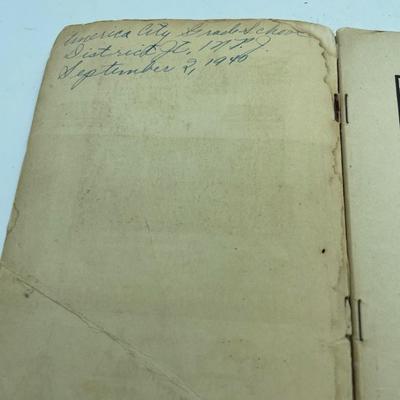 America City Grade School
District Jt.
September 2, 1940